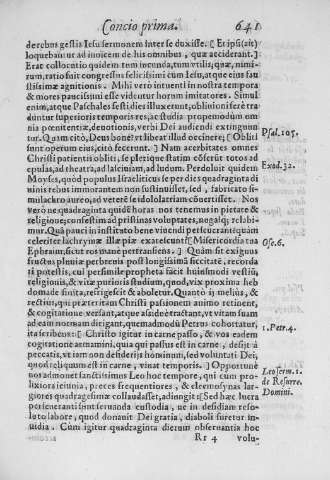 Concio prima. 641
de rebus gestis Iesu sermonem inter se duxisse. [Et ipsi (ait)
loquebantur ad inuicem de his omnibus, quæ acciderant.]
Erat collocutio quidem tum iucunda, tum vtilis; quæ, nimi-
rum, ratio fuit congressus felicissimi cum Iesu, atque eius fau
stissimæ agnitionis. Mihi verò intuenti in nostra tempora
& mores paucissimi esse videntur horum imitatores. Simul
enim, atque Paschales festi dies illuxerunt, obliuioni ferè tra
duntur superioris temporis res, ac studia propemodùm om
nia pœnitentiæ, deuotionis, verbi Dei audiendi extinguun
tur. Quàm citò, Deus bone? vt libeat illud occinere; [Obliti
sunt operum eius, citò fecerunt.] Nam acerbitates omnes
Christi patientis obliti, se plerique statim cōferūt totos ad
epulas, ad theatra, ad lasciuiam, ad ludum. Perdoluit quidem
Moyses, quòd populus Israeliticus se per dies quadraginta di
uinis rebus immorantem non sustinuisset, sed, fabricato si-
mulachro aureo, ad veterē se idololatriam cōuertisset. Nos
verò ne quadraginta quidē horas nos tenemus in pietate &
religione; confestim ad pristinas voluptates, negalæq; relabi-
mur. Quā pauci in instituto bene viuendi perseuerāt! quàm
celeriter lachrymæ illæ piæ exarescunt! [Misericordia tua
Ephraim, sicut ros manè pertransiens.] Quàm sit exiguus
fructus pluuiæ perbreuis post longissimā siccitatē, recorda
ti potestis, cui persimile propheta facit huiusmodi vestiū,
religionis, & vitæ purioris studium, quod, vix proxima heb
domade finita, refrigescit & aboletur. Quantò is meliùs, &
rectiùs, qui præteritam Christi passionem animo retinent,
& cogitatione versant, atque asidè tractant, vt vitam suam
ad eam normam dirigant, quemadmodū Petrus cohortatur,
ita scribens: [Christo igitur in carne passo, & vos eadem
cogitatione armamini, quia qui passus est in carne, desijt à
peccatis, vt iam non desiderijs hominum, sed voluntati Dei,
quod reliquum est in carne, viuat temporis.] Opportunè
nos admonet sanctissimus Leo hoc tempore, qui cum pro-
lixiora ieiunia, preces frequentiores, & eleemosynas lar-
giores quadragesimæ collaudasset, adiungit: [Sed hæc lucra
perseueranti sunt seruanda custodia, ne in desidiam reso-
luto labore, quod donauit Dei gratia, diaboli furetur in-
uidia. Cum igitur quadraginta dierum obseruantia hoc
Rr 4 volu-
Psal. 105.
Exod. 32.
Ose. 6.
1. Petr. 4.
Leo serm. 1.
de Resurre.
Domini.